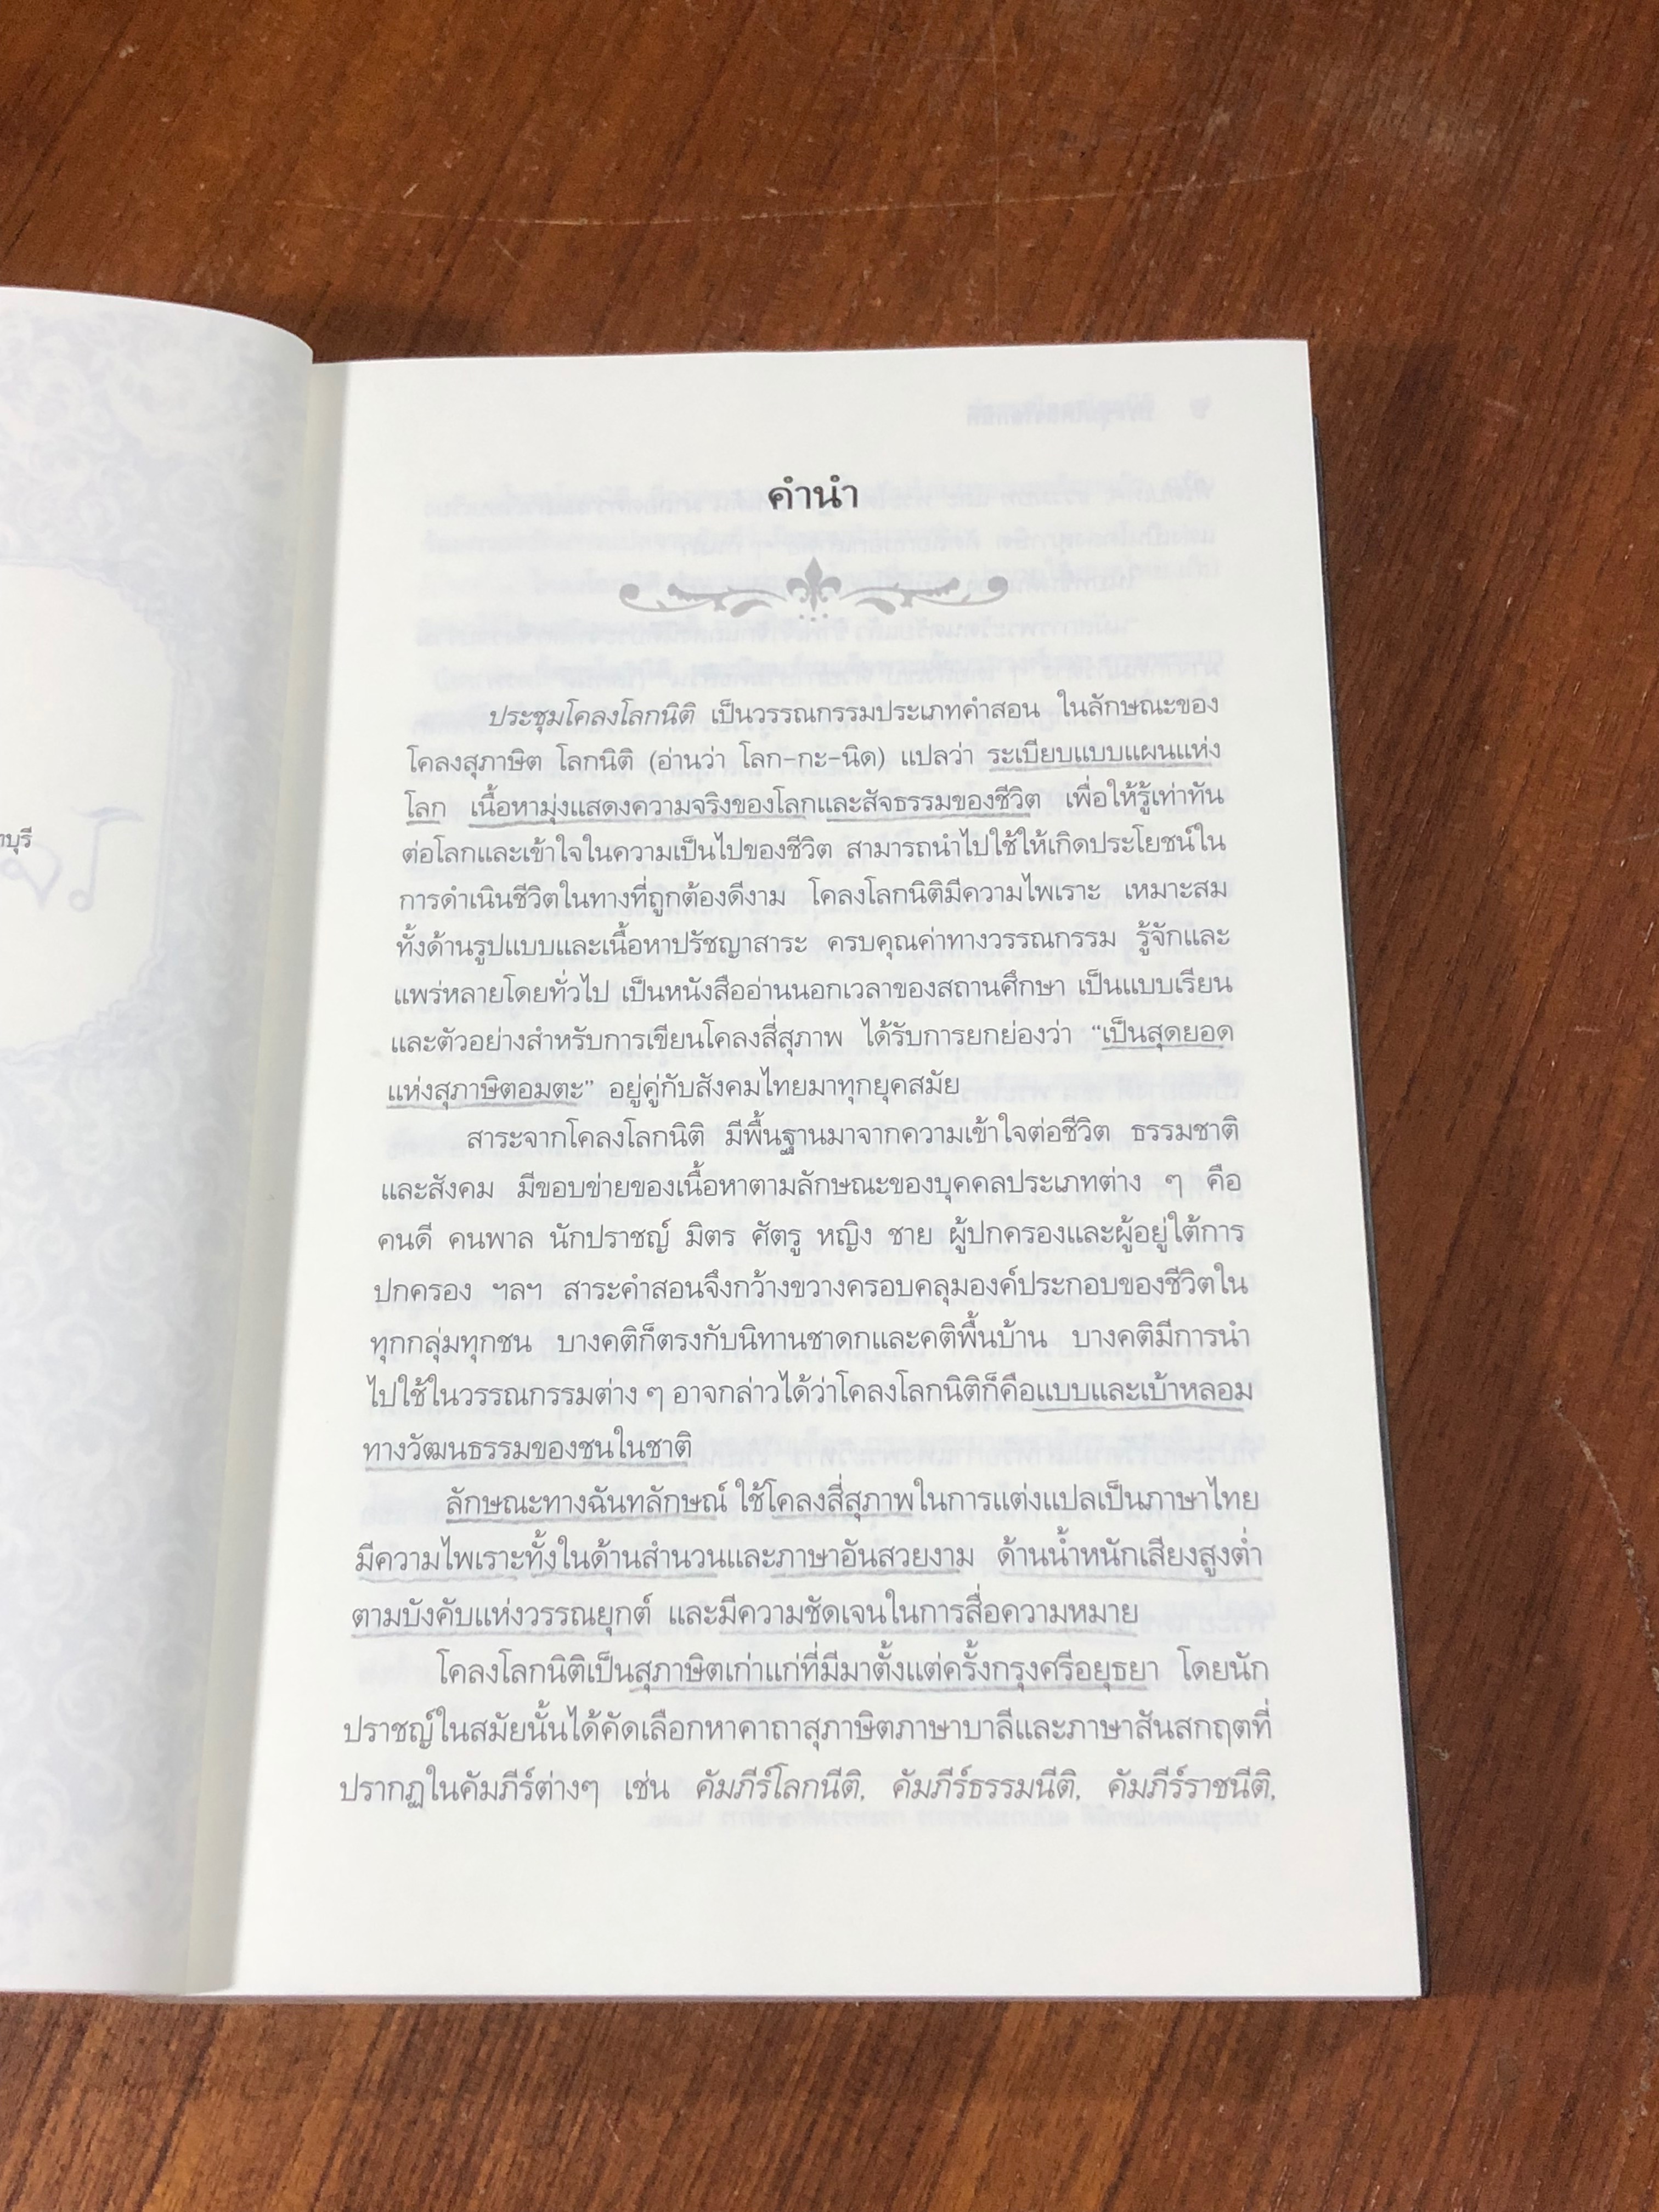 คำนำ
ประชุมโคลงโลกนิติ เป็นวรรณกรรมประเภทคำสอน ในลักษณะของ
โคลงสุภาษิต โลกนิติ (อ่านว่า โลก-กะ-นิด) แปลว่า ระเบียบแบบแผนแห่ง
โลก เนื้อหามุ่งแสดงความจริงของโลกและสัจธรรมของชีวิต เพื่อให้รู้เท่าทัน
ต่อโลกและเข้าใจในความเป็นไปของชีวิต สามารถนำไปใช้ให้เกิดประโยชน์ใน
การดำเนินชีวิตในทางที่ถูกต้องดีงาม โคลงโลกนิติมีความไพเราะ เหมาะสม
ทั้งด้านรูปแบบและเนื้อหาปรัชญาสาระ ครบคุณค่าทางวรรณกรรม รู้จักและ
แพร่หลายโดยทั่วไป เป็นหนังสืออ่านนอกเวลาของสถานศึกษา เป็นแบบเรียน
และตัวอย่างสำหรับการเขียนโคลงสี่สุภาพ ได้รับการยกย่องว่า “เป็นสุดยอด
แห่งสุภาษิตอมตะ” อยู่คู่กับสังคมไทยมาทุกยุคสมัย
สาระจากโคลงโลกนิติ มีพื้นฐานมาจากความเข้าใจต่อชีวิต ธรรมชาติ
และสังคม มีขอบข่ายของเนื้อหาตามลักษณะของบุคคลประเภทต่าง ๆ คือ
คนดี คนพาล นักปราชญ์ มิตร ศัตรู หญิง ชาย ผู้ปกครองและผู้อยู่ใต้การ
ปกครอง ฯลฯ สาระคำสอนจึงกว้างขวางครอบคลุมองค์ประกอบของชีวิตใน
ทุกกลุ่มทุกชน บางคติก็ตรงกับนิทานชาดกและคติพื้นบ้าน บางคติมีการนำ
ไปใช้ในวรรณกรรมต่าง ๆ อาจกล่าวได้ว่าโคลงโลกนิติก็คือแบบและเบ้าหลอม
ทางวัฒนธรรมของชนในชาติ
ลักษณะทางฉันทลักษณ์ ใช้โคลงสี่สุภาพในการแต่งแปลเป็นภาษาไทย
มีความไพเราะทั้งในด้านสำนวนและภาษาอันสวยงาม ด้านน้ำหนักเสียงสูงต่ำ
ตามบังคับแห่งวรรณยุกต์ และมีความชัดเจนในการสื่อความหมาย
โคลงโลกนิติเป็นสุภาษิตเก่าแก่ที่มีมาตั้งแต่ครั้งกรุงศรีอยุธยา โดยนัก
ปราชญ์ในสมัยนั้นได้คัดเลือกหาคาถาสุภาษิตภาษาบาลีและภาษาสันสกฤตที่
ปรากฏในคัมภีร์ต่างๆ เช่น คัมภีร์โลกนีติ, คัมภีร์ธรรมนีติ, คัมภีร์ราชนีติ,